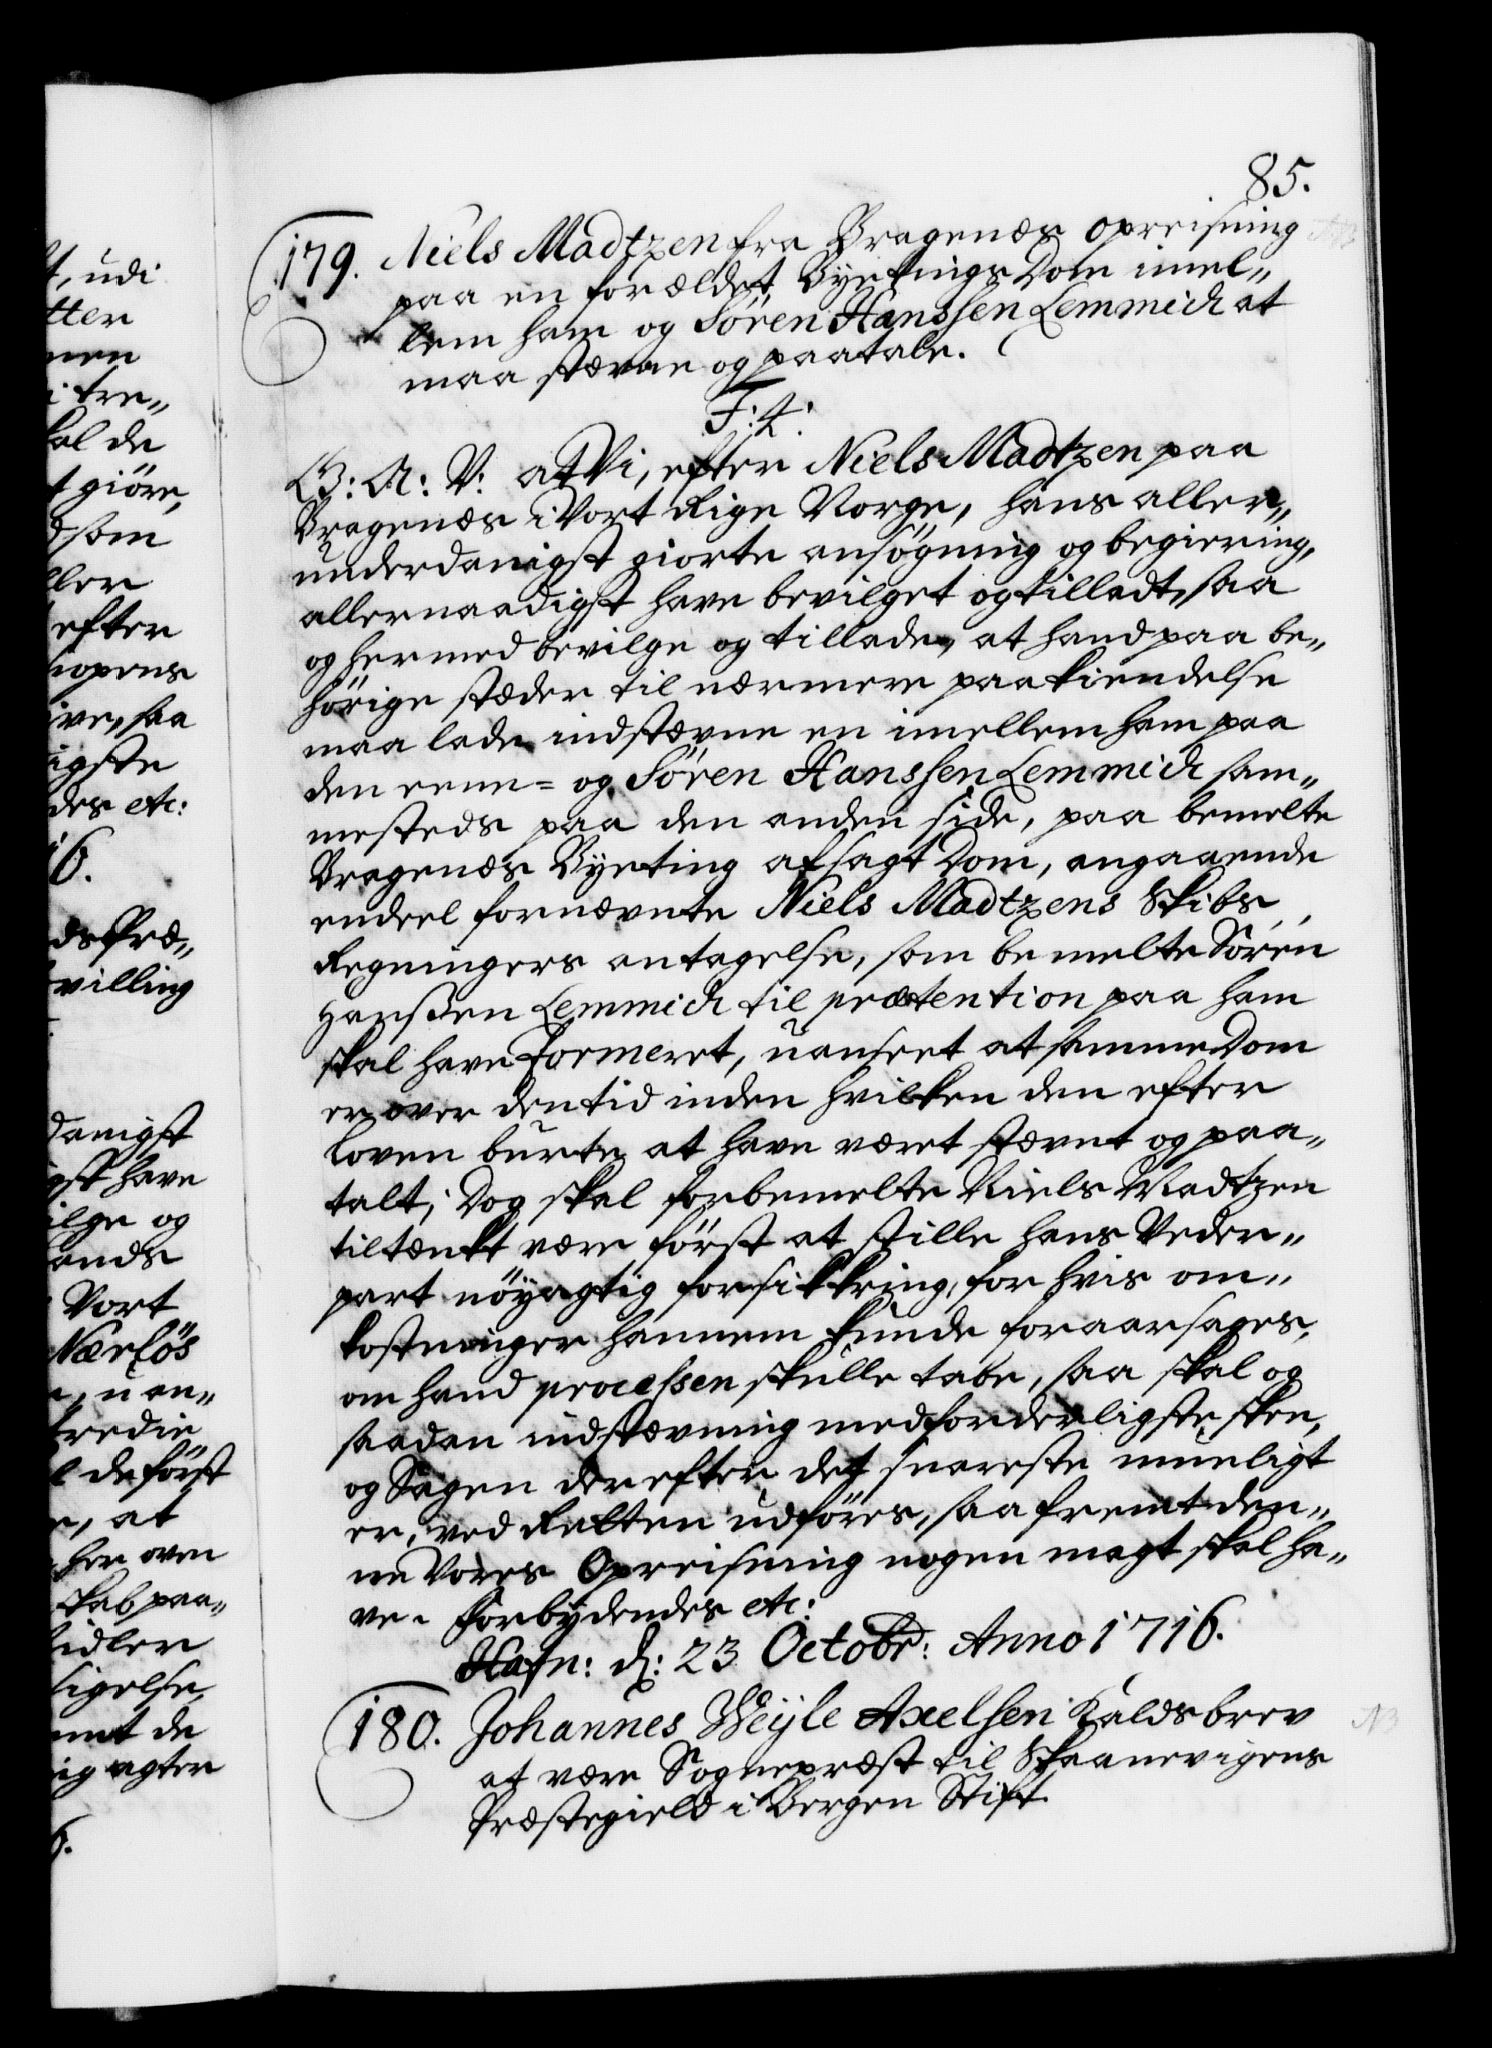 85.
179. Niels Madtzen fra Bragenæs Opreisning
paa en forældet Byetings Dom imel„
lem ham og Sören Hanssen Lemmich at
maa stævne og paatale.
F: 4:
G: A: V: at Vi, efter Niels Madtzen paa
Bragenæs i Vort Rige Norge, hans aller„
underdanigst giorte ansögning og begiering,
allernaadigst have bevilget og tilladt, saa
og hermed bevilge og tillade, at hand paa be„
hörige stæder til nærmere paakiendelse
maa lade indstævne en imellem ham paa
den eene= og Sören Hanssen Lemmich sam„
mesteds paa den anden side, paa bemelte
Bragenæs Byeting afsagt Dom, angaaende
endeel fornævnte Niels Madtzens Skibs
Regningers antagelse, som bemelte Sören
Hanssen Lemmich til prætention paa ham
skal have formeret, uanseet at samme Dom
er over den tid inden hvilken den efter
Loven burte at have været stævnt og paa„
talt; Dog skal forbemelte Niels Madtzen
tiltænkt være först at stille hans Veder„
part nöyagtig forsikkring, for hvis om„
kostninger hannem kunde foraarsages,
om hand processen skulle tabe, saa skal og
saadan indstævning med forderligste skee,
og Sagen derefter det snareste mueligt
er, ved Retten udföres, saa fremt den„
ne Vores Opreisning nogen magt skal ha„
ve. Forbydendes etc:
Hafn: d: 23 Octobr: Anno 1716.
180. Johannes Weyle Axelsen Kaldsbrev
at være Sognepræst til Skaanevigens
Præstegield i Bergen Stift.
t, udi
tter
men
i tre„
kal de
t giöre,
som
ller
efter
ive, saa
igste
des etc:
16.
ds Præ„
villing
danigst
gst have
ilge og
ands
Vort
Nærlös
e, uan„
tredie
l de först
e, at
her oven
skab paa„
idler
ligelse,
mt de
ig agter
6.